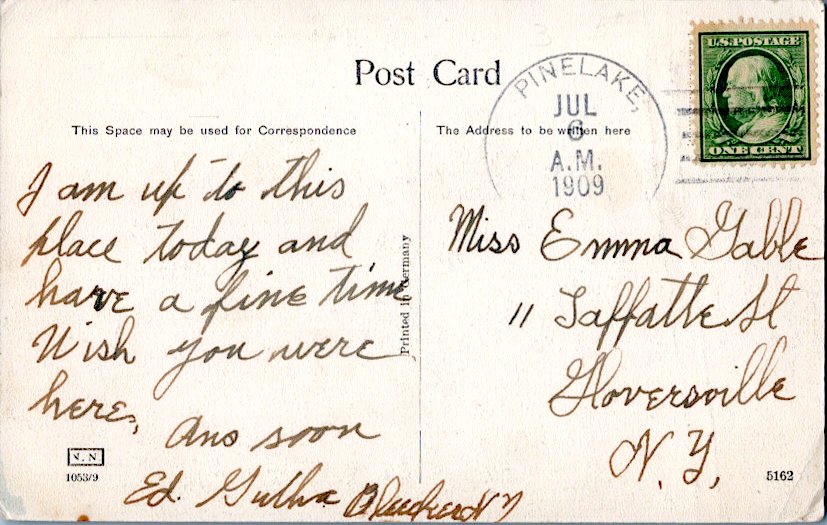 Post Card
PINELAKE,
JUL
6
A.M.
1909
U.S. POSTAGE
ONE CENT
This Space may be used for Correspondence
The Address to be written here
I am up to this
place today and
have a fine time
Wish you were
here,
Ans soon
Ed.
Bleecker N Y
Printed in Germany
Miss Emma Gable
11 Laffatte St
Gloversville
N. Y,
N. N
1053/9
5162